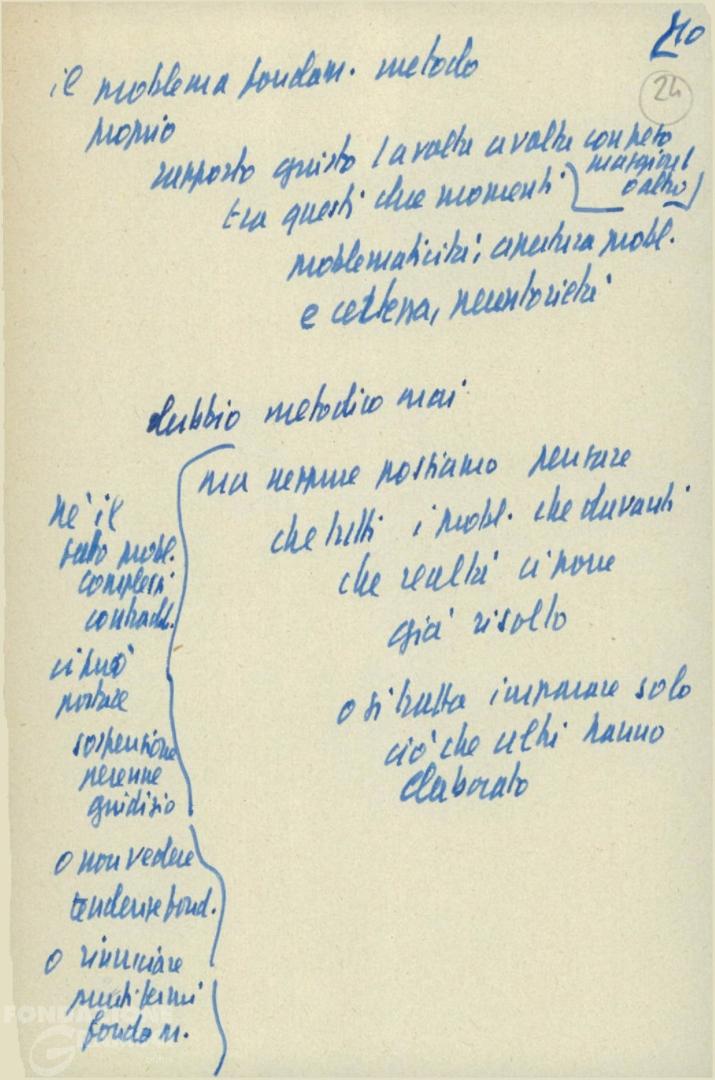 40
24
il problema fondam. metodo
proprio
rapporto giusto (a volte a volte con peto
maggiore
o altro)
tra questi due momenti
problematicità, apertura probl.
e certezza, perentorietà
dubbio metodico mai
ma neppure possiamo pensare
che tutti i probl. che davanti
che realtà ci pone
già risolto
o si tratta imparare solo
ciò che altri hanno
elaborato
né il
fatto probl.
complessi
contradd.
ci può
portare
sospensione
perenne
giudizio
o non vedere
tendenze fond.
o rinunciare
punti fermi
fondam.
FONDAZIONE